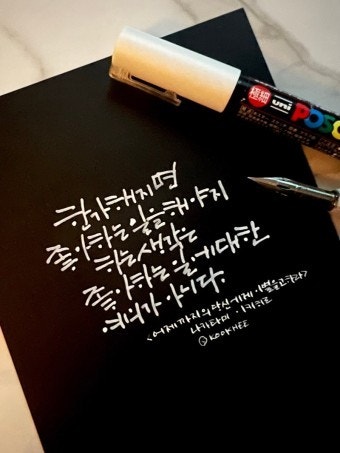 한가해지면
좋아하는 일을 해야지
하는 생각은
좋아하는 일에 대한
예의가 아니다.
<어제까지의 당신에게 이별을 고하라>
나카타미 아키히로
@KOOKHEE
uni
POSC